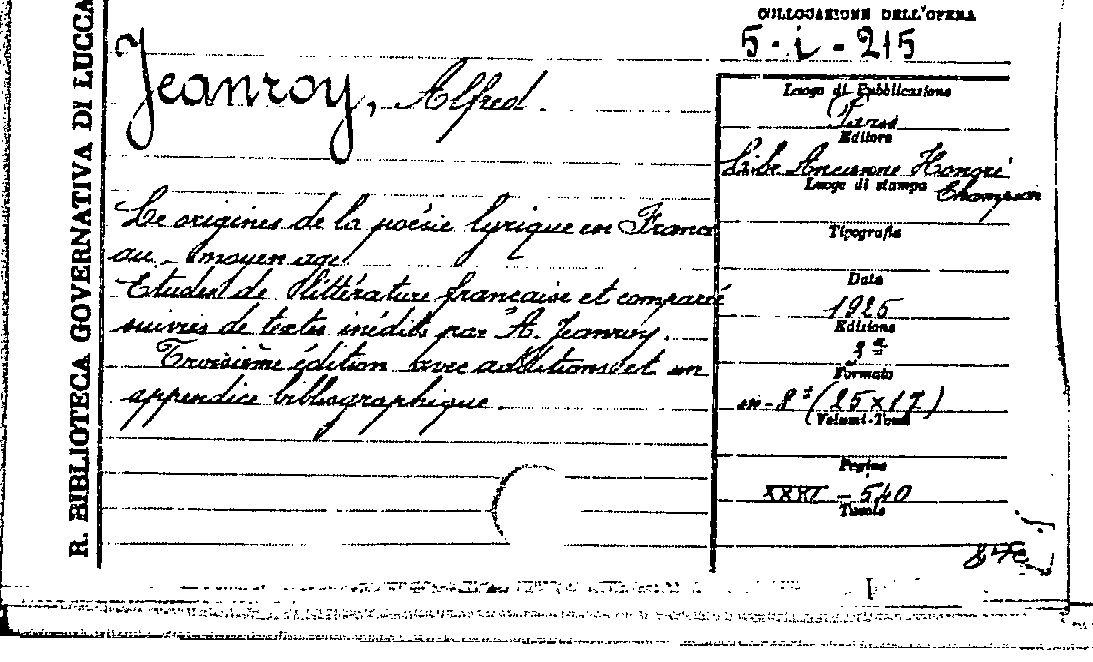 R. BIBLIOTECA GOVERNATIVA DI LUCCA
COLLOCAZIONE DELL'OPERA
5-i-215
Jeanroy, Alfred.
Le origines de la poésie lyrique en France
au moyen age
Etudes de littérature francaise et comparée
suivies de textes inédits par A. Jeanroy.
Troisième édition avec additions et un
appendice bibliographique.
Luogo di Pubblicazione
Editore
Luogo di stampa
Champion
Tipografia
Data
1925
Edizione
3ª
Formato
in-8° (25x17)
Volumi-Tomi
Pagine
XXXI - 540
Tavole